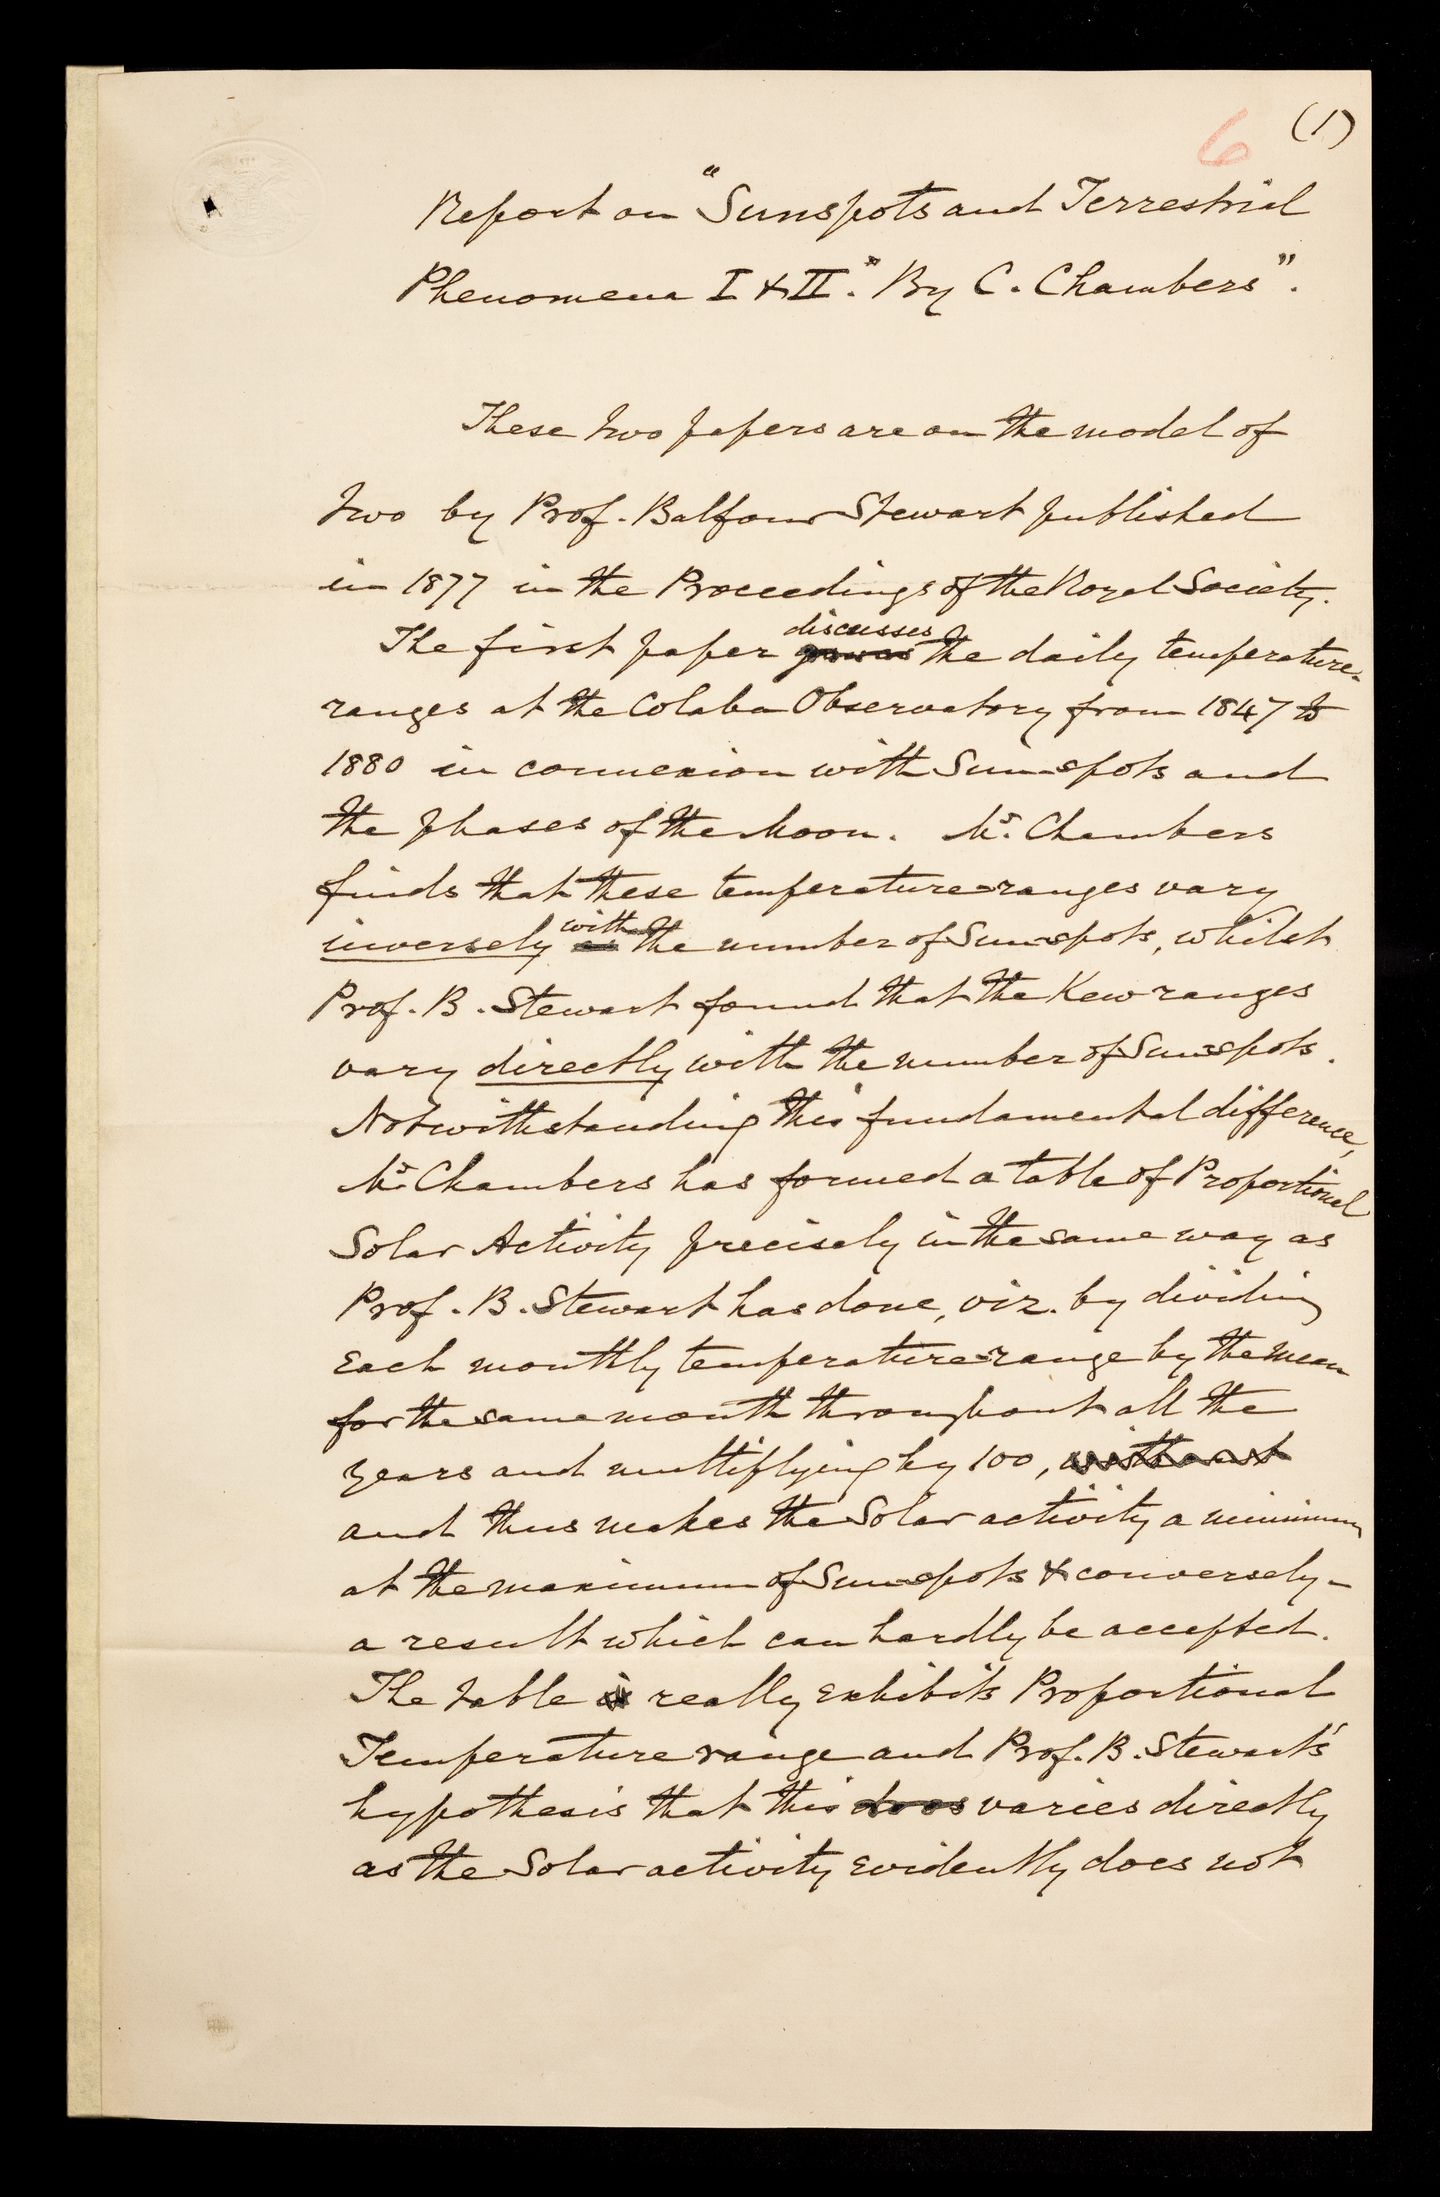 6 (1)
Report on "Sunspots and Terrestrial
Phenomena I & II." By C. Chambers".
These two papers are on the model of
two by Prof. Balfour Stewart published
in 1877 in the Proceedings of the Royal Society.
discusses
The first paper the daily temperature-
ranges at the Colaba Observatory from 1847 to
1880 in connexion with Sun-spots and
the phases of the Moon. Mr. Chambers
finds that these temperature-ranges vary
with
inversely as the number of Sun-spots, whilst
Prof. B. Stewart found that the Kew ranges
vary directly with the number of Sun-spots.
Notwithstanding this fundamental difference,
Mr. Chambers has formed a table of Proportional
Solar Activity precisely in the same way as
Prof. B. Stewart has done, viz. by dividing
each monthly temperature-range by the mean
for the same month throughout all the
years and multiplying by 100, without
and thus makes the Solar activity a minimum
at the maximum of Sun-spots & conversely -
a result which can hardly be accepted.
The table is really exhibits Proportional
Temperature range and Prof. B. Stewart's
hypothesis that this does varies directly
as the Solar activity evidently does not